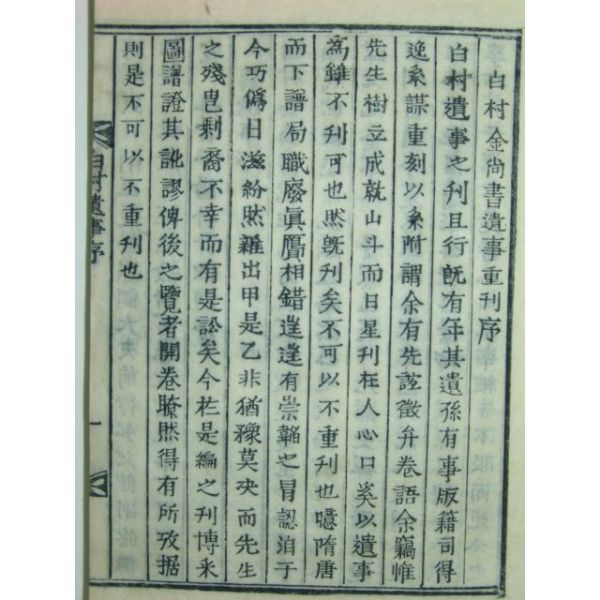 白村金尙書遺事重刊序
白村遺事之刊且行旣有年其遺孫有事版籍司得
逸系謀重刻以系附謂余有先誼徵弁卷語余竊惟
先生樹立成就山斗而日星刊在人心口奚以遺事
爲雖不刊可也然旣刊矣不可以不重刊也噫隋唐
而下譜局職廢眞贋相錯逄逄有崇韜之冒認洎于
今巧僞日滋紛然雜出甲是乙非猶豫莫夬而先生
之殘邑剩裔不幸而有是訟矣今於是編之刊博采
圖譜證其訛謬俾後之覽者開卷瞭然得有所攷据
則是不可以不重刊也
白村遺事序
一